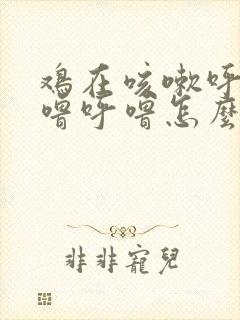 鸡在咳嗽呼
噜呼噜怎麽
非非寵兒